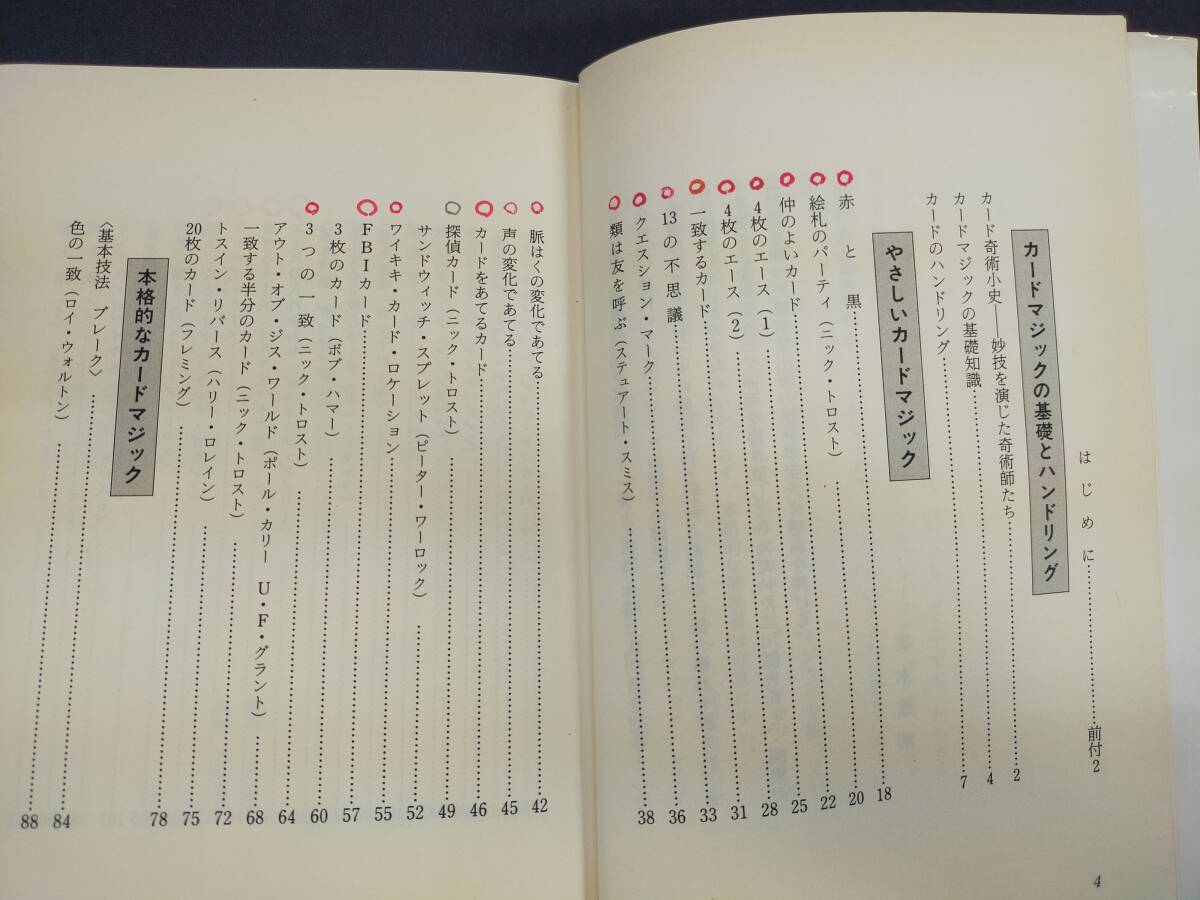 はじめに……前付2
カードマジックの基礎とハンドリング
カード奇術小史——妙技を演じた奇術師たち……2
カードマジックの基礎知識……4
カードのハンドリング……7
やさしいカードマジック
赤と黒……18
絵札のパーティ(ニック・トロスト)……20
仲のよいカード……22
4枚のエース(1)……25
4枚のエース(2)……28
一致するカード……31
13の不思議……33
クエスション・マーク……36
類は友を呼ぶ(ステュアート・スミス)……38
4
脈はくの変化であてる……42
声の変化であてる……45
カードをあてるカード……46
探偵カード(ニック・トロスト)……49
サンドウィッチ・スプレット(ピーター・ワーロック)……52
ワイキキ・カード・ロケーション……55
FBIカード……57
3枚のカード(ボブ・ハマー)……60
3つの一致(ニック・トロスト)……64
アウト・オブ・ジス・ワールド(ポール・カリー U・F・グラント)……68
一致する半分のカード(ニック・トロスト)……72
トスイン・リバース(ハリー・ロレイン)……75
20枚のカード(フレミング)……78
本格的なカードマジック
〈基本技法 ブレーク〉……84
色の一致(ロイ・ウォルトン)……88